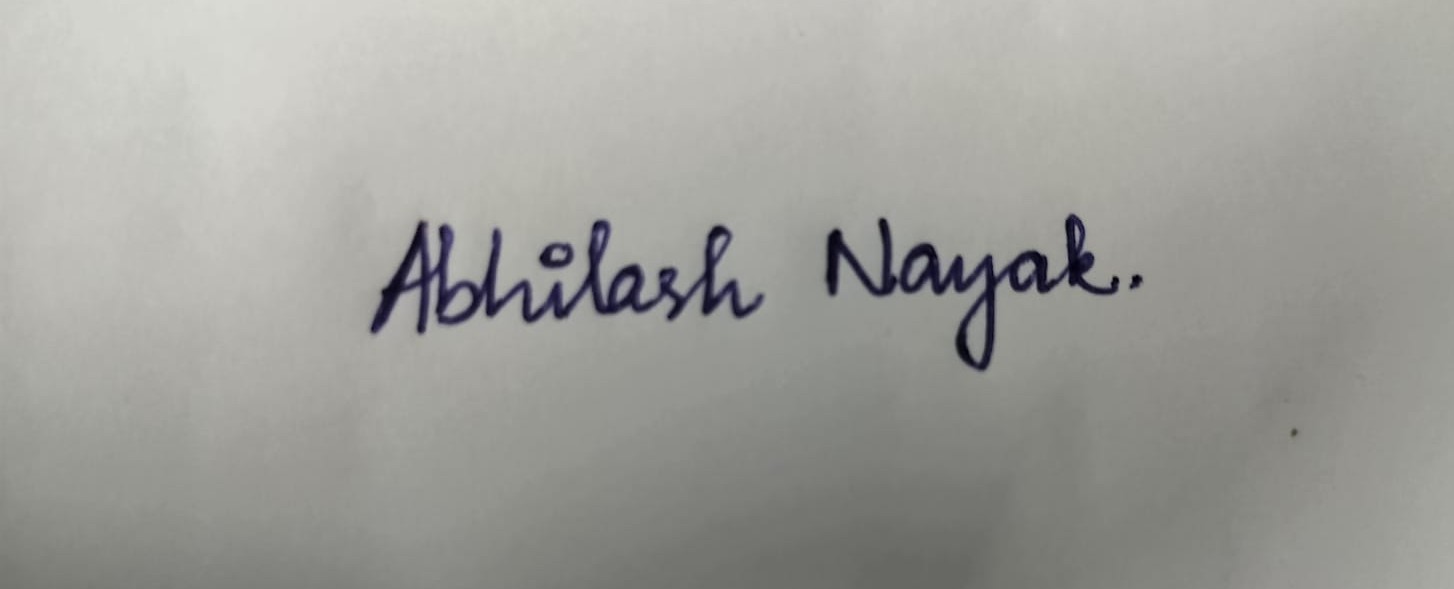 Abhilash Nayak.